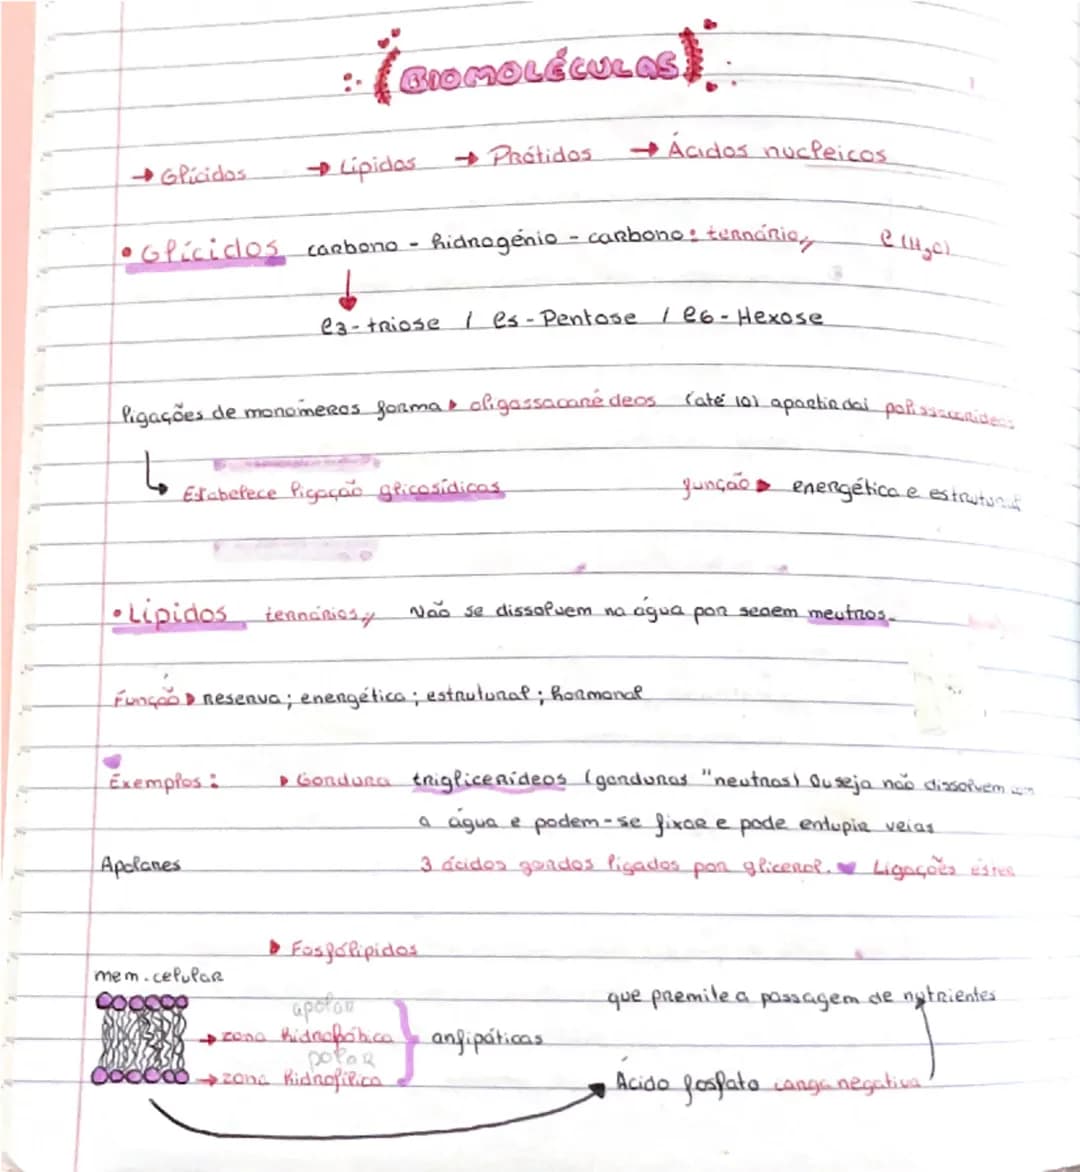 BIOMOLÉCULAS
→ Glícidos → Lípidos → Prótidos → Ácidos nucleicos
• Glícidos carbono - hidrogénio - carbono: ternário,, C(H₂C)
C3 - triose / C5 - Pentose / C6 - Hexose
ligações de monómeros forma ▸ oligossacarédeos (até 10) apartir daí polissacarídeos
Estabelece ligação glicosídicas função ▸ energética e estrutural
• Lípidos ternários,, Não se dissolvem na água por serem neutros.
Função ▸ reserva; energética; estrutural; hormonal
Exemplos: ▸ Gordura triglicerídeos (gorduras "neutras) Ou seja não dissolvem em
a água e podem-se fixar e pode entupir veias
Apolares 3 ácidos gordos ligados por glicerol. Ligações éster
▸ Fosfólipidos
mem. celular
que premite a passagem de nutrientes
apolar
→ zona hidrofóbica
anfipáticas
polar
→ zona hidrofílica
Ácido fosfato carga negativa